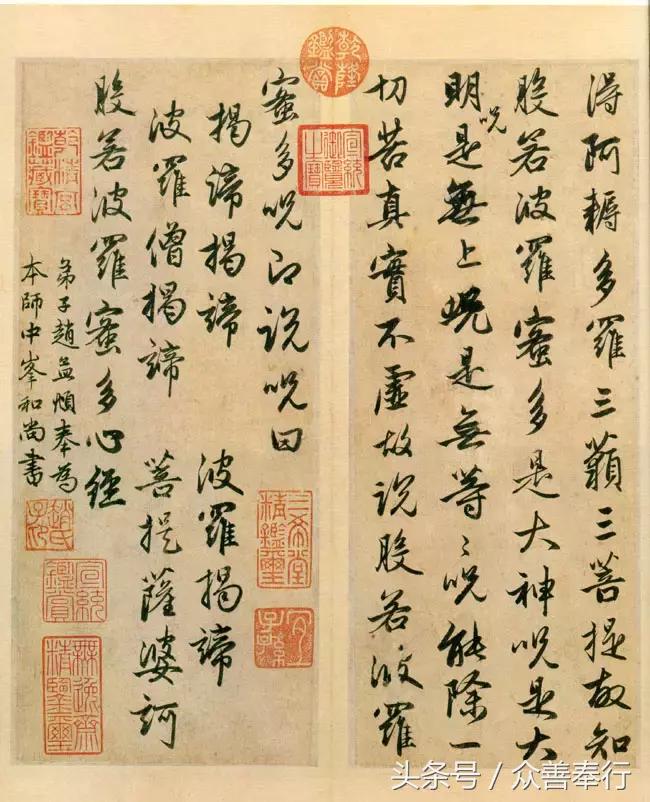 得阿耨多羅三藐三菩提故知
般若波羅蜜多是大神呪是大
明呪是無上呪是無等〻呪能除一
切苦真實不虛故說般若波羅
蜜多呪即說呪曰
揭諦揭諦 波羅揭諦
波羅僧揭諦 菩提薩婆訶
般若波羅蜜多心經
弟子趙孟頫奉為
本師中峯和尚書
乾隆鑑賞
宣統御覽之寶
三希堂精鑑璽
宜子孫
乾清宮鑑藏寶
趙氏子昂
宣統鑑賞
無逸齋精鑑璽
头条号／众善奉行